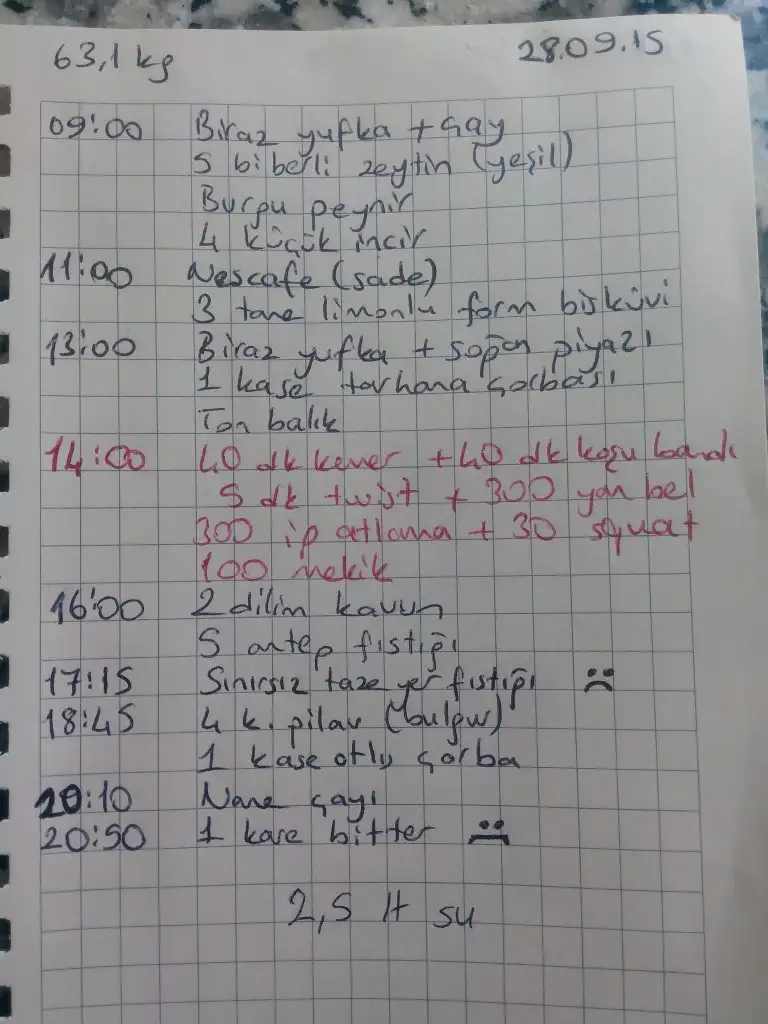 63,1 kg 28.09.15
09:00 Biraz yufka + çay
5 biberli zeytin (yeşil)
Burgu peynir
4 küçük incir
11:00 Nescafe (sade)
3 tane limonlu form bisküvi
13:00 Biraz yufka + soğan piyazı
1 kase tarhana çorbası
Ton balık
14:00 40 dk kemer + 40 dk koşu bandı
5 dk twist + 300 yan bel
300 ip atlama + 30 squat
100 mekik
16:00 2 dilim kavun
5 antep fıstığı
17:15 Sınırsız taze yer fıstığı
18:45 4 k. pilav (bulgur)
1 kase otlu çorba
20:10 Nane çayı
20:50 1 kare bitter
2,5 lt su